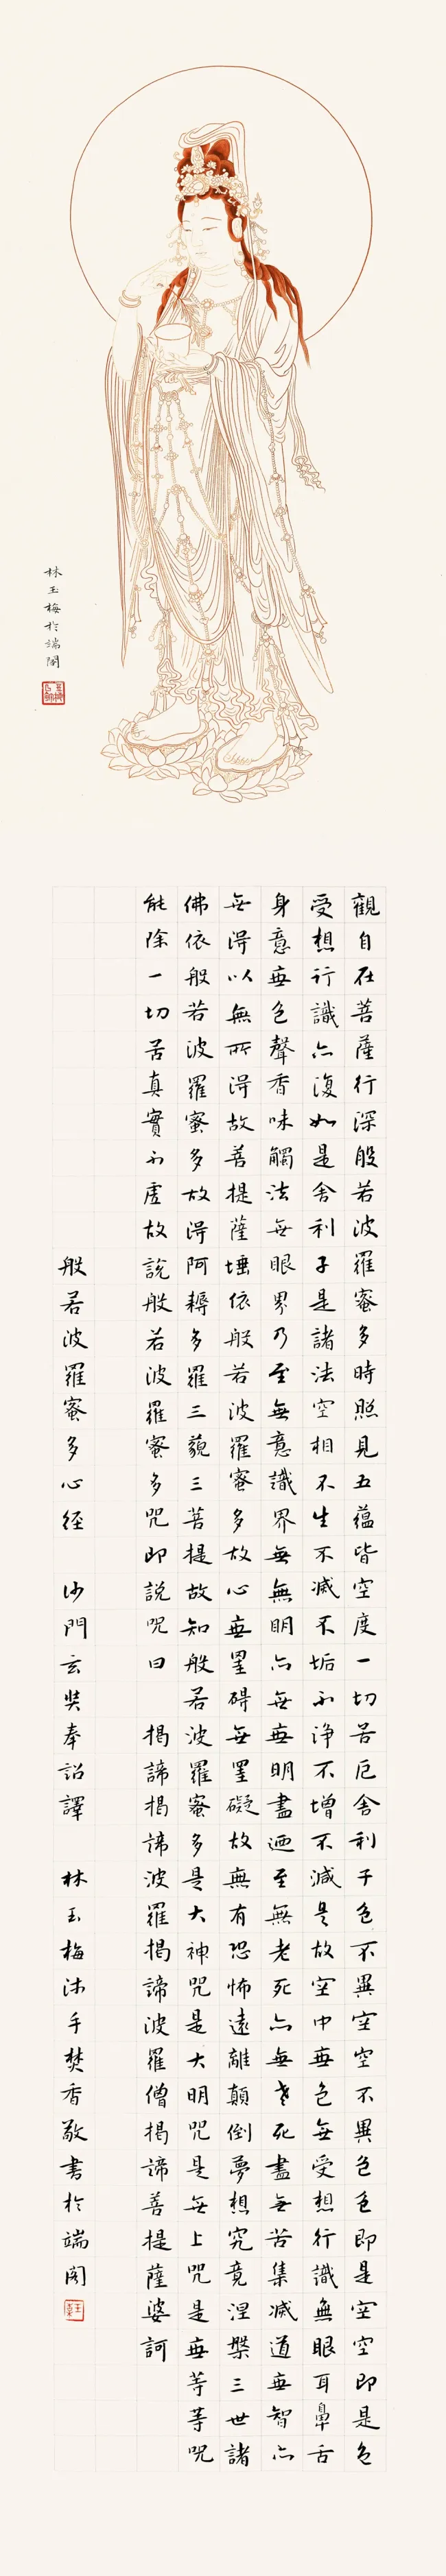 林玉梅於端閣
觀自在菩薩行深般若波羅蜜多時照見五蘊皆空度一切苦厄舍利子色不異空空不異色色即是空空即是色
受想行識亦復如是舍利子是諸法空相不生不滅不垢不淨不增不減是故空中無色無受想行識無眼耳鼻舌
身意無色聲香味觸法無眼界乃至無意識界無無明亦無無明盡迺至無老死亦無老死盡無苦集滅道無智亦
無得以無所得故菩提薩埵依般若波羅蜜多故心無罣碍無罣礙故無有恐怖遠離顛倒夢想究竟涅槃三世諸
佛依般若波羅蜜多故得阿耨多羅三藐三菩提故知般若波羅蜜多是大神咒是大明咒是無上咒是無等等咒
能除一切苦真實不虛故說般若波羅蜜多咒即說咒曰 揭諦揭諦波羅揭諦波羅僧揭諦菩提薩婆訶
般若波羅蜜多心經 沙門玄奘奉詔譯 林玉梅沐手焚香敬書於端閣